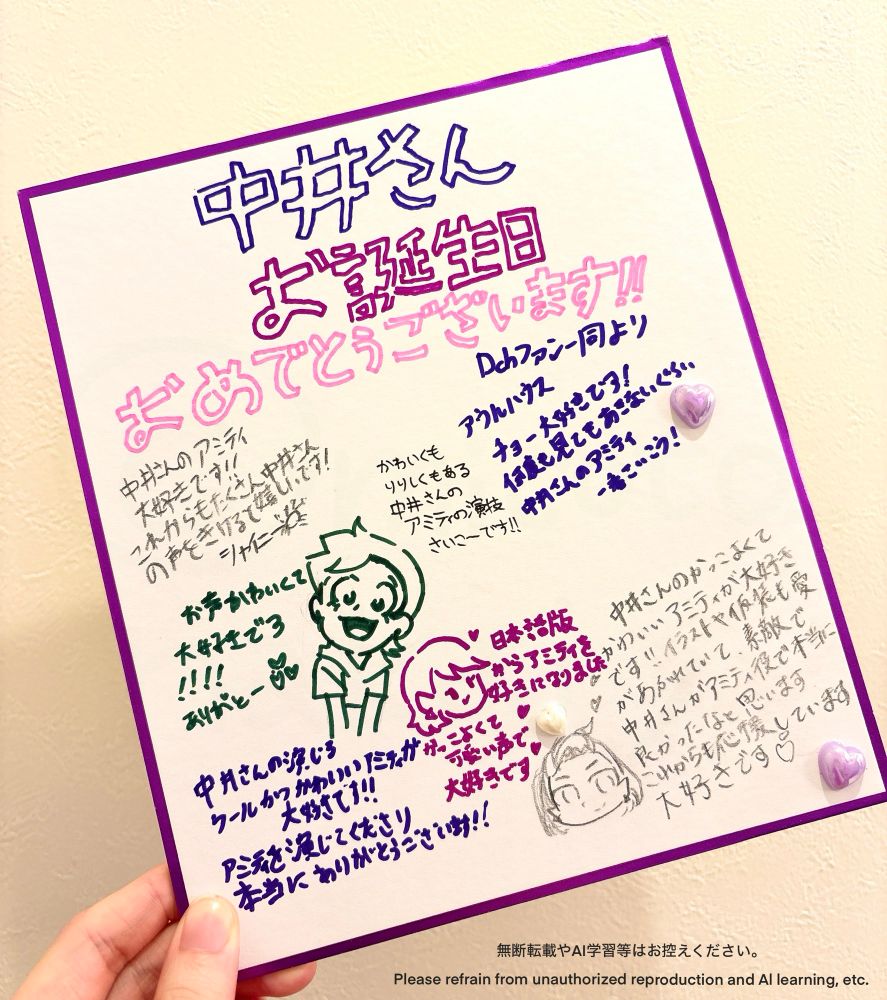 中井さん
お誕生日
おめでとうございます!!
Dchファン一同より
中井さんのアミティ
大好きです!!
これからもたくさん中井さん
の声をきけると嬉しいです!
シャイニー
かわいくも
りりしくもある
中井さんの
アミティの演技
さいこ〜です!!
アウルハウス
チョー大好きです!
何度も見てもあきないぐらい
中井さんのアミティ
一番こいこう!
お声かわいくて
大好きでろ
!!!!
ありがとー
日本語版
からアミティを
好きになりました
かっこよくて
可愛い声で
大好きです
中井さんのかっこよくて
かわいいアミティが大好き
です!!イラストや仮装も愛
があふれていて、素敵で
中井さんがアミティ役で本当に
良かったなと思います
これからも応援しています
大好きです♡
中井さんの演じる
クールかつかわいいアミティが
大好きです!!
アミティを演じてくださり
本当にありがとうございます!!
無断転載やAI学習等はお控えください。
Please refrain from unauthorized reproduction and AI learning, etc.